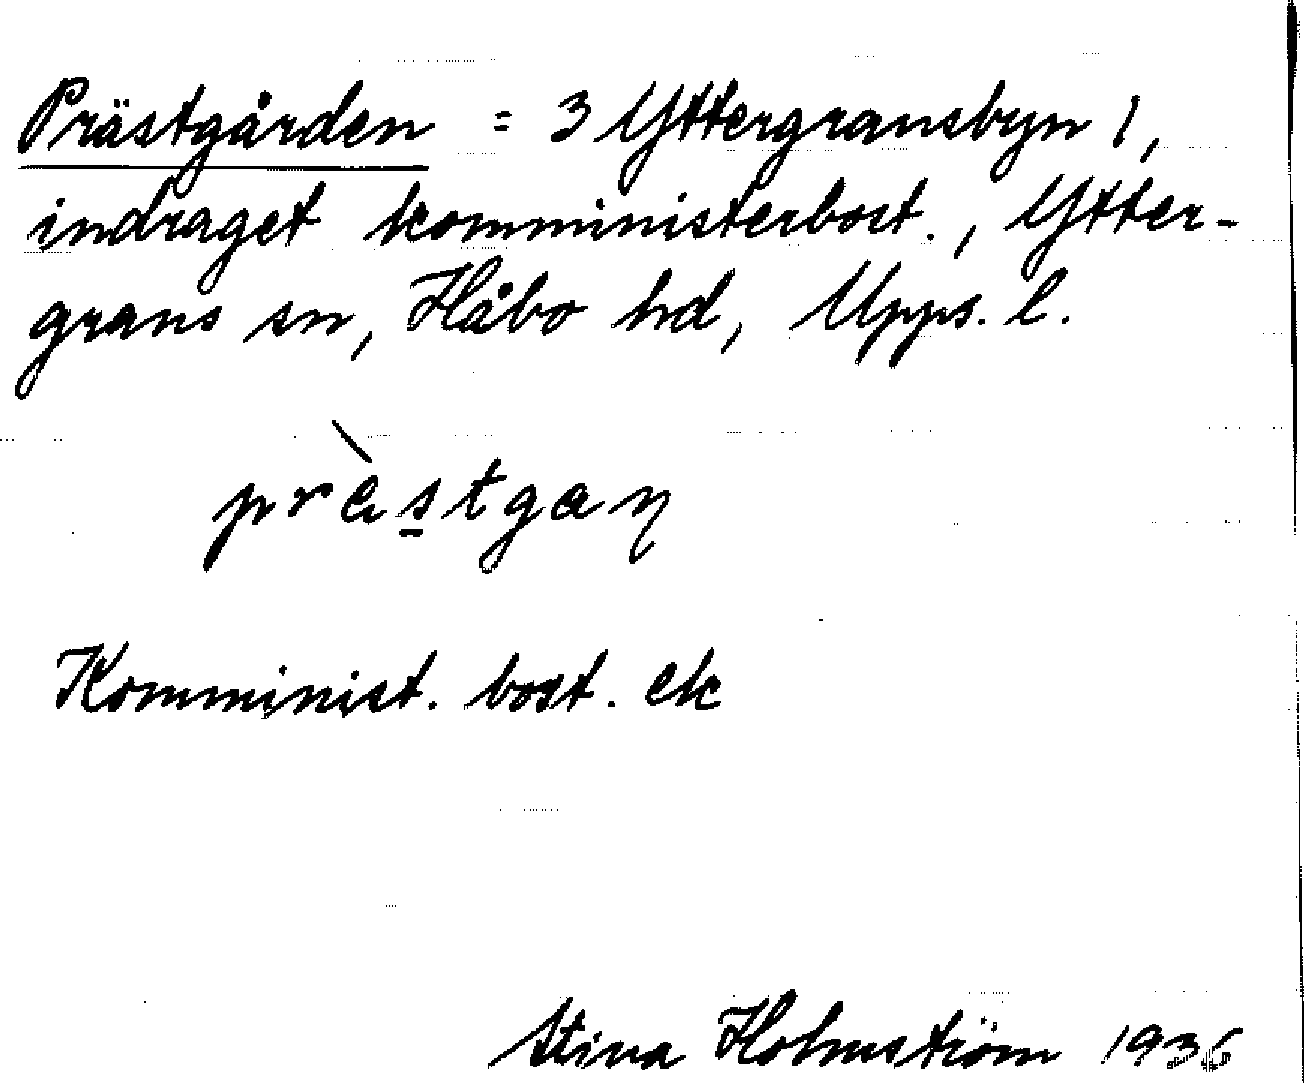 Prästgården = 3 Yttergransbyn 1,
indraget komministerbost., Ytter-
grans sn, Håbo hd, Upps. l.
prὲstgaɳ
Komminist. bost. ek
Stina Holmström 1936